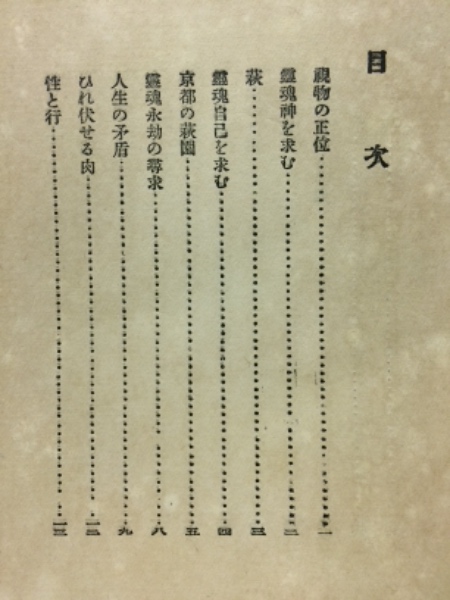 目次
視物の正位……一
靈魂神を求む……二
萩……三
靈魂自己を求む……四
京都の萩園……五
靈魂永劫の尋求……八
人生の矛盾……九
ひれ伏せる肉……一二
性と行……一三